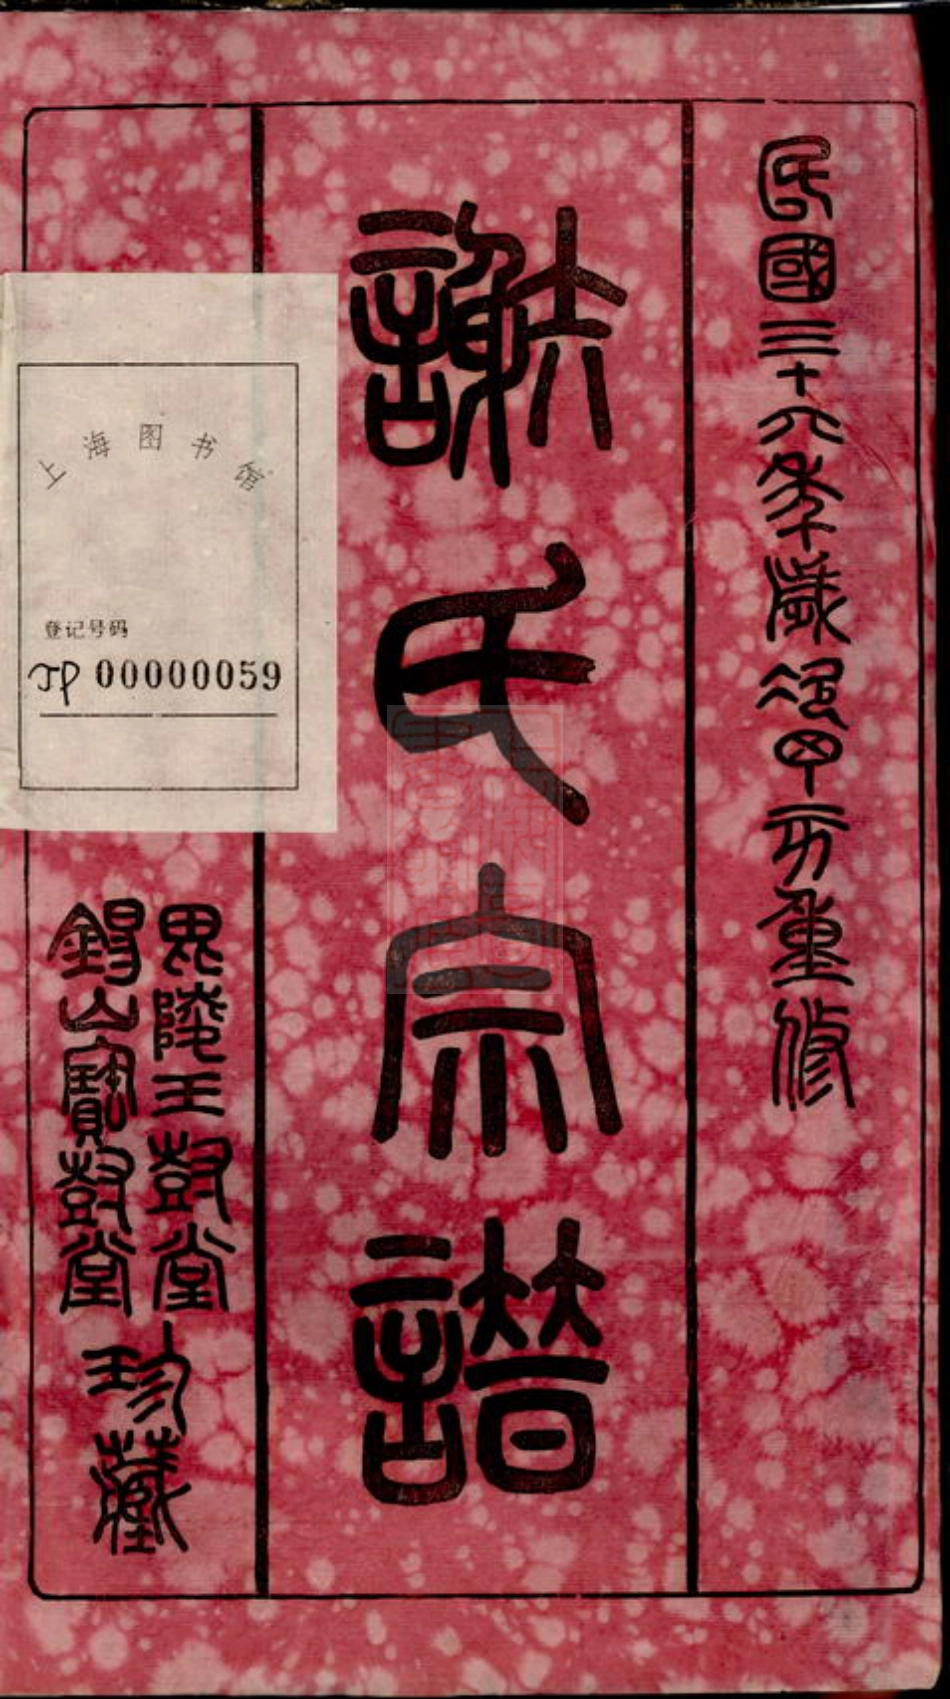 民國三十六年歲次丁亥重修
謝氏宗譜
毘陵玉樹堂
錫山寶樹堂
珍藏
上海图书馆
登记号码
JP 00000059